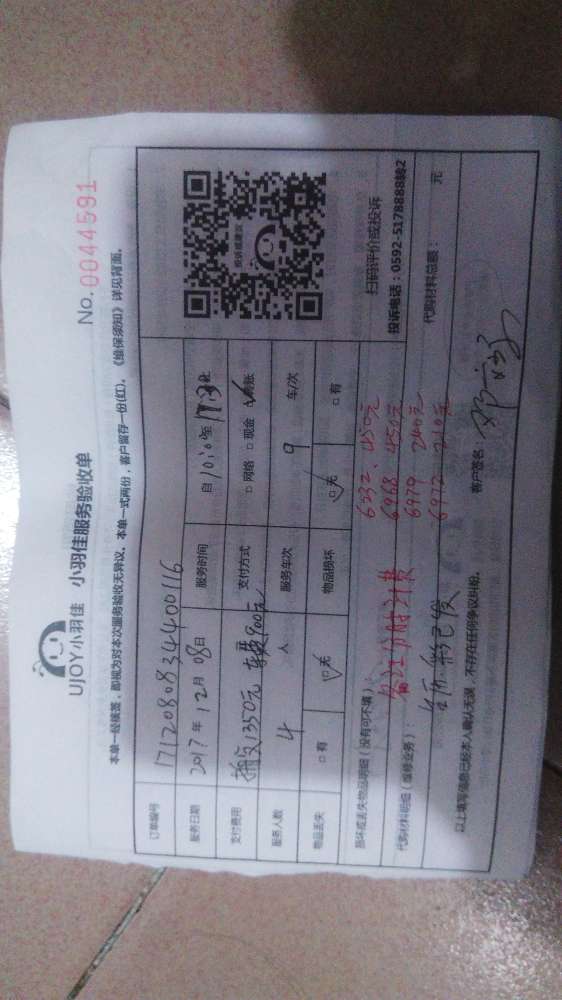 UJOY小羽佳 小羽佳服务验收单 No.0044591
本单一经核签，即视为对本次服务验收无异议。本单一式两份，客户留存一份(红)。《维保须知》详见背面。
订单编号 17120808344400116
服务日期 2017年12月08日 服务时间 自10:00至17:
支付费用 搞交1350元 车费900元 支付方式 □网络 □现金 □转账
服务人数 4 人 服务车次 9 车/次
物品丢失 □有 □无 物品损坏 □无 □有
投诉或建议
扫码评价或投诉
投诉电话：0592-5178888转2
损坏或丢失物品明细（没有可不填）：
6232. 450元
代购材料明细（维修业务）： 分时计费 6968 450元 代购材料总额： 元
6979 240元
6972 210元
以上填写信息已经本人确认无误，不存在任何争议纠纷。 客户签名：